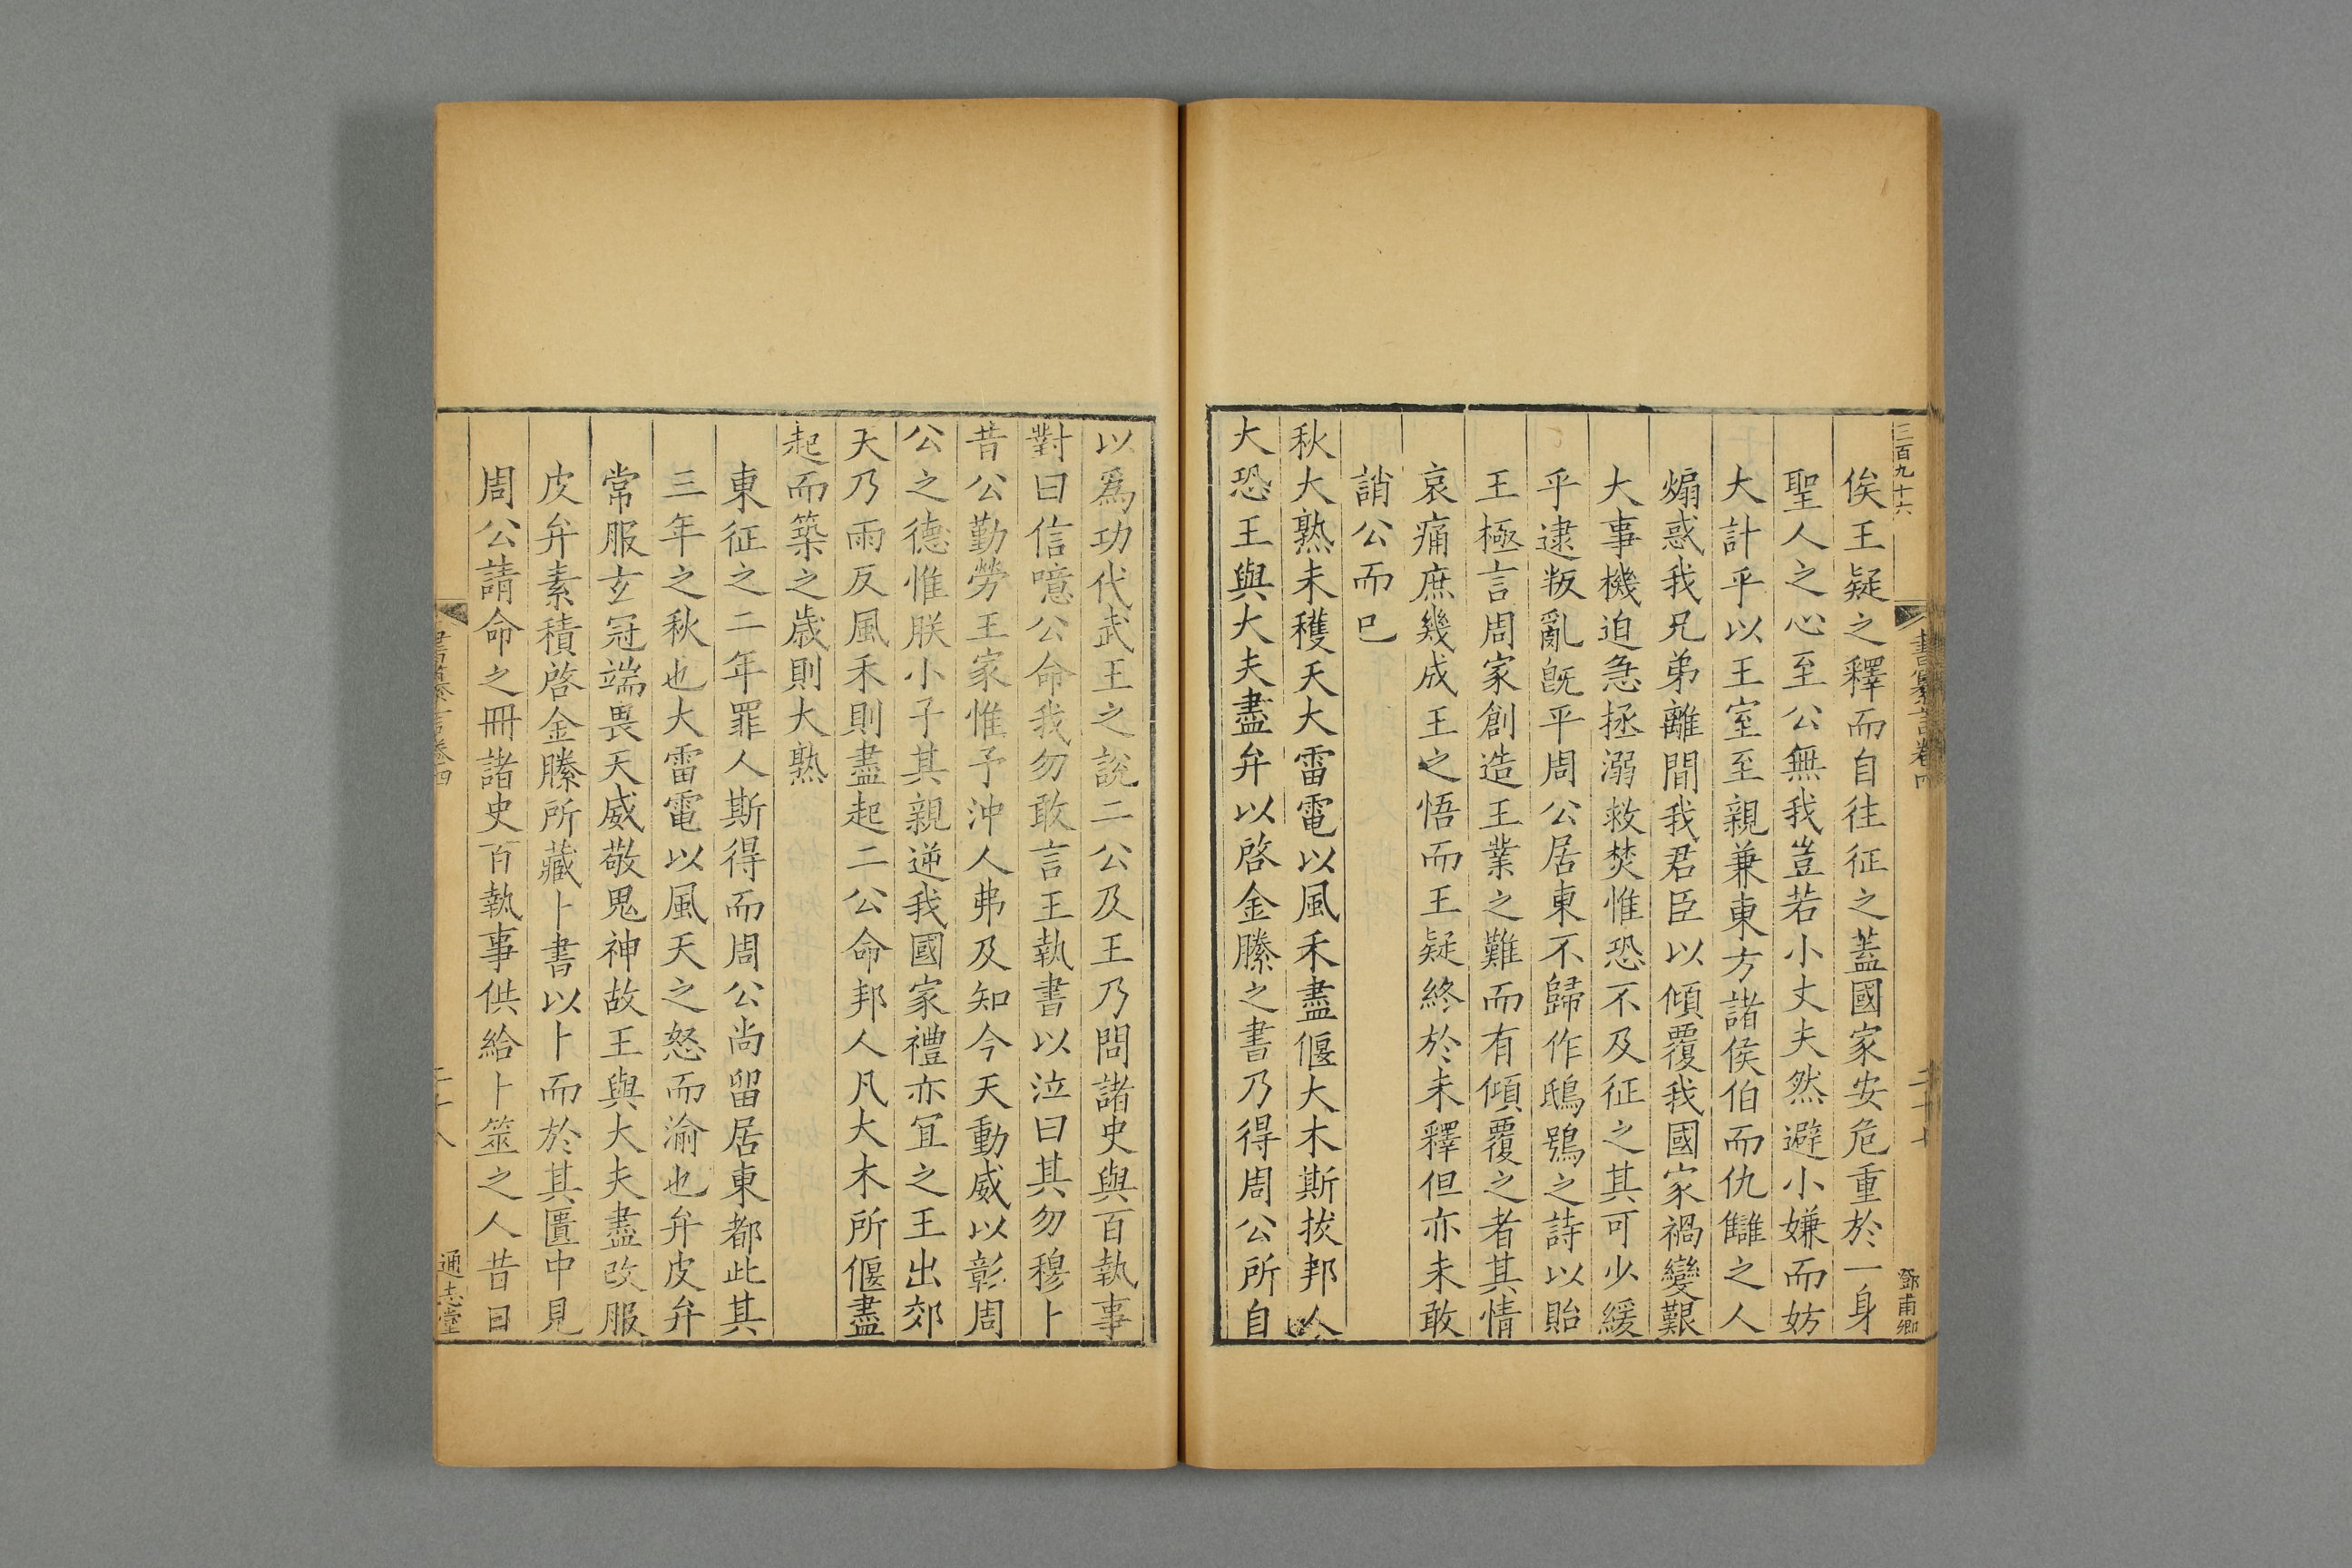 三百九十六
書纂言卷四
二十七
鄧甫卿
俟王疑之釋而自往征之蓋國家安危重於一身
聖人之心至公無我豈若小丈夫然避小嫌而妨
大計乎以王室至親兼東方諸侯伯而仇讎之人
煽惑我兄弟離間我君臣以傾覆我國家禍變艱
大事機迫急拯溺救焚惟恐不及征之其可少緩
乎逮叛亂旣平周公居東不歸作鴟鴞之詩以貽
王極言周家創造王業之難而有傾覆之者其情
哀痛庶幾成王之悟而王疑終於未釋但亦未敢
誚公而巳
秋大熟未穫天大雷電以風禾盡偃大木斯拔邦人
大恐王與大夫盡弁以啓金縢之書乃得周公所自
以爲功代武王之說二公及王乃問諸史與百執事
對曰信噫公命我勿敢言王執書以泣曰其勿穆卜
昔公勤勞王家惟予沖人弗及知今天動威以彰周
公之德惟朕小子其親逆我國家禮亦宜之王出郊
天乃雨反風禾則盡起二公命邦人凡大木所偃盡
起而築之歲則大熟
東征之二年罪人斯得而周公尚留居東都此其
三年之秋也大雷電以風天之怒而渝也弁皮弁
常服玄冠端畏天威敬鬼神故王與大夫盡改服
皮弁素積啓金縢所藏卜書以卜而於其匱中見
周公請命之冊諸史百執事供給卜筮之人昔日
書纂言卷四
二十八
通志堂